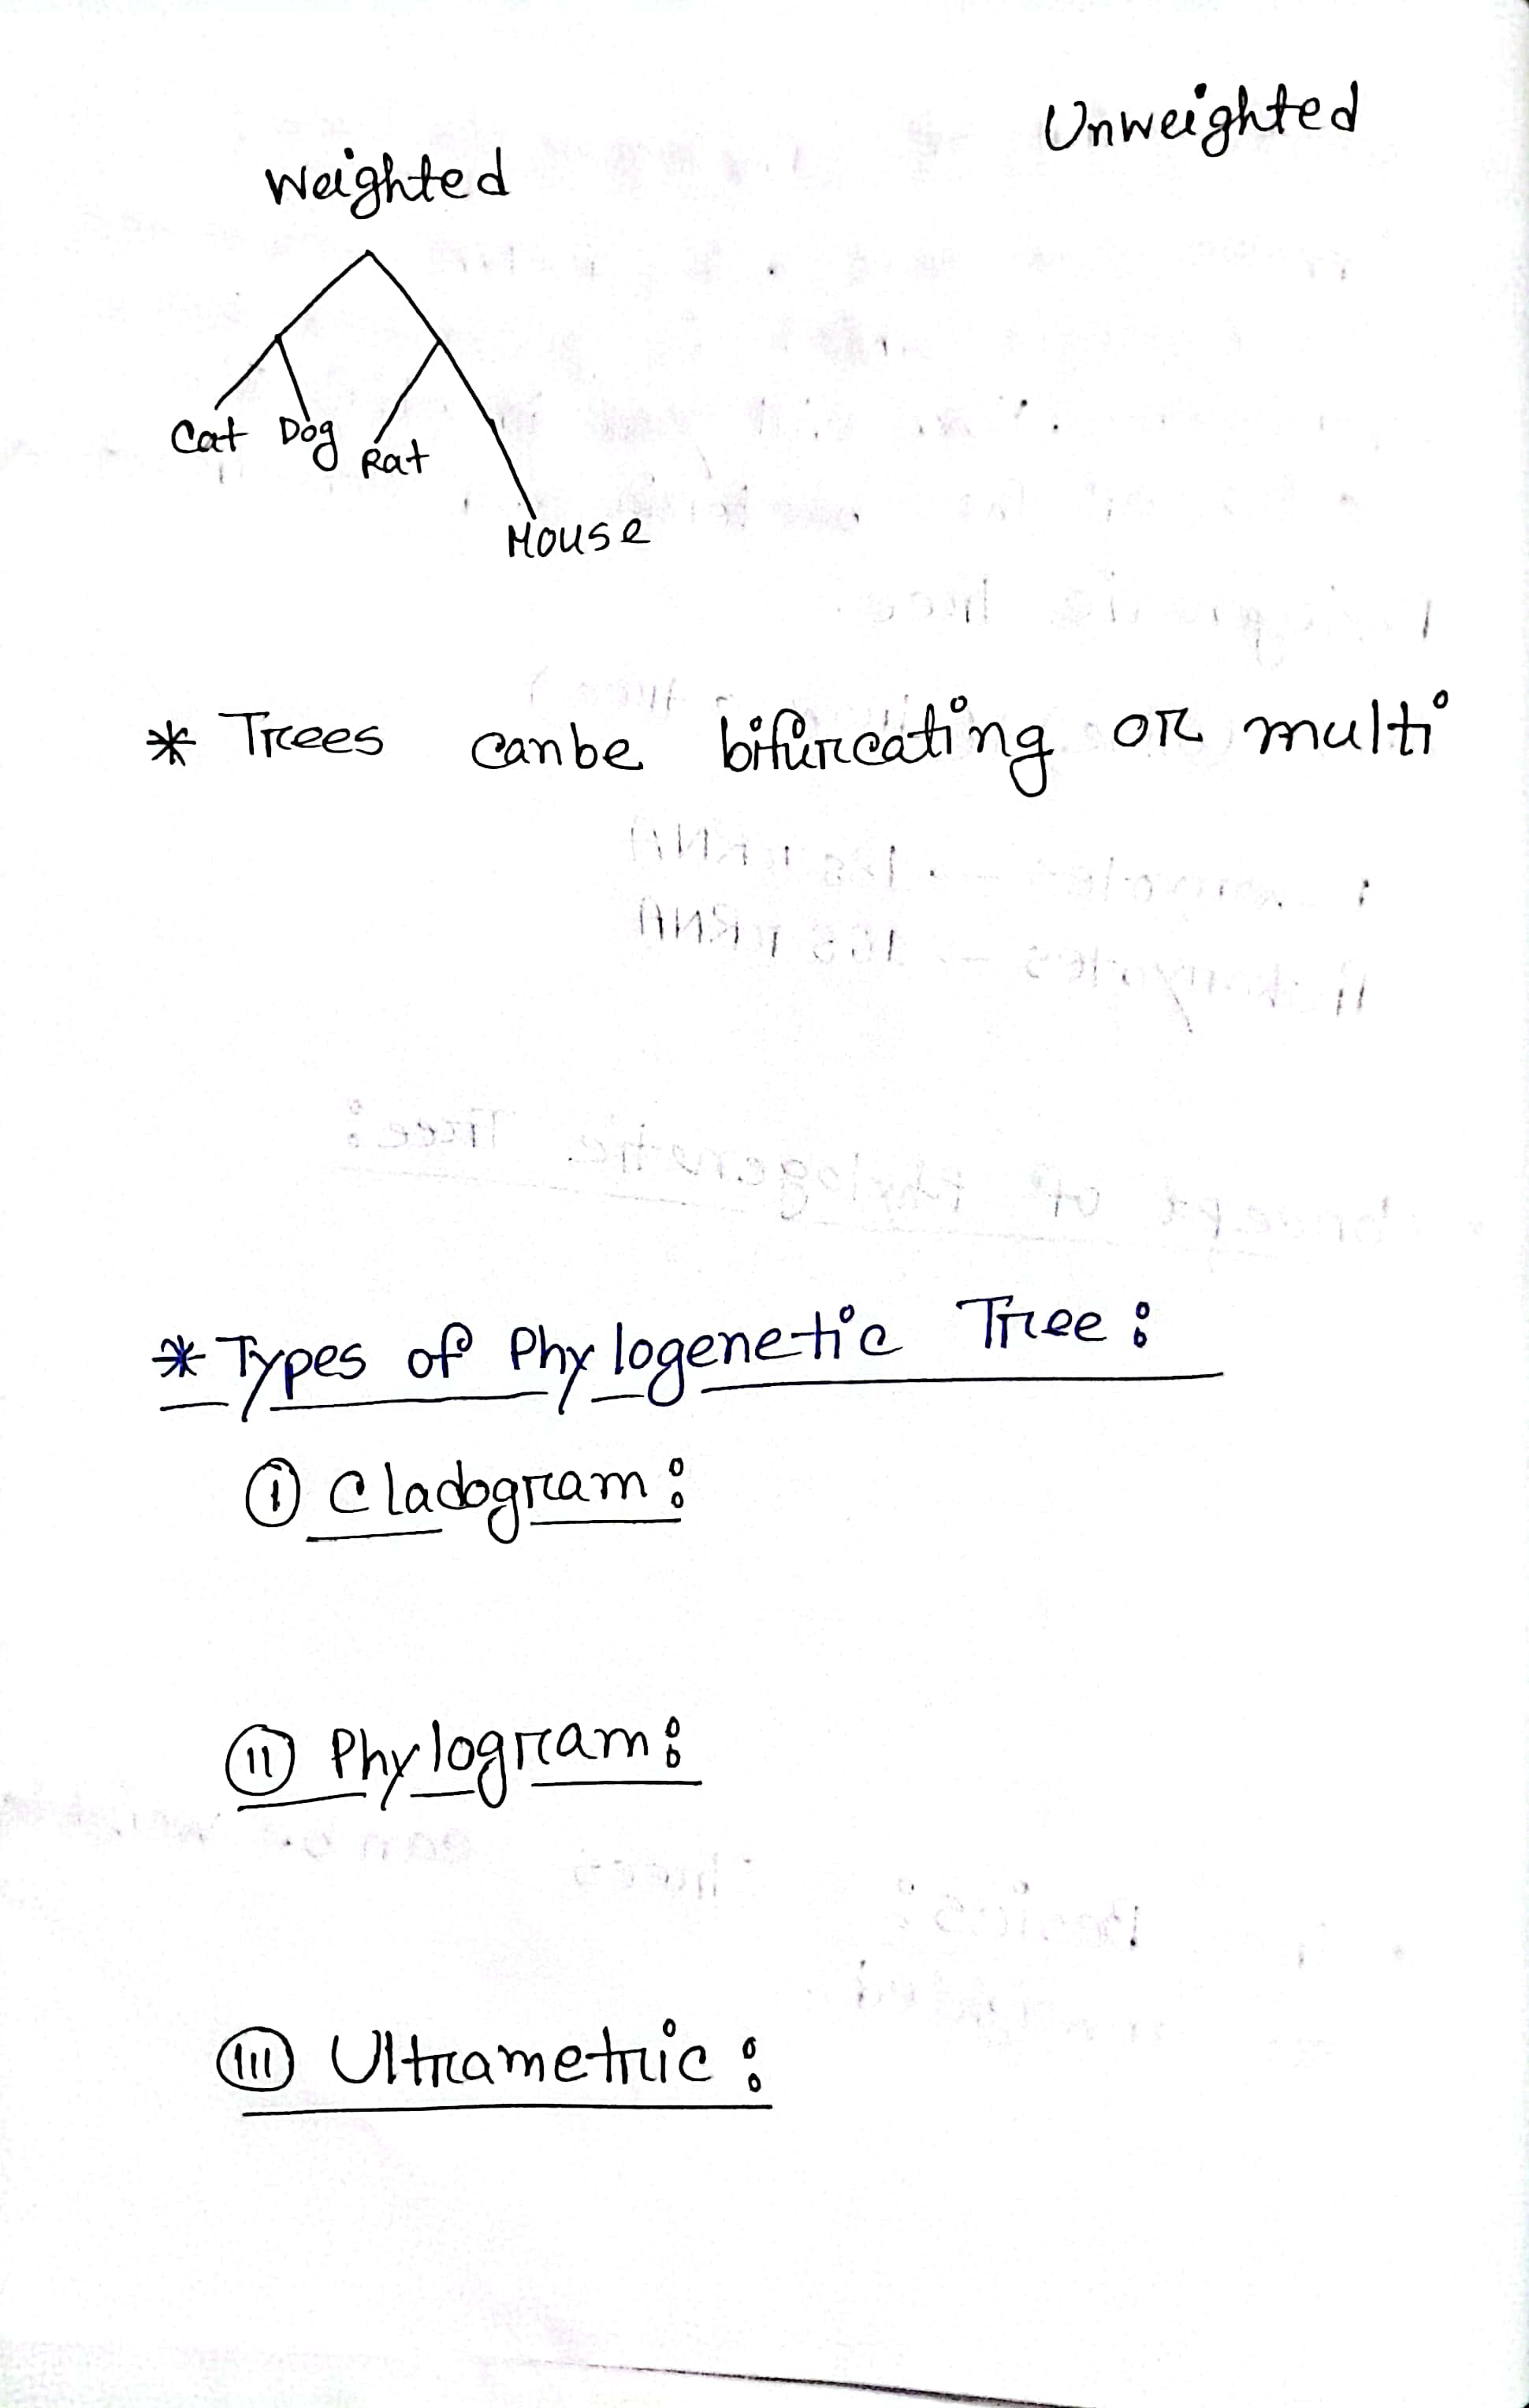 Unweighted
Weighted
Cat Dog Rat
Mouse
* Trees canbe bifurcating or multi
* Types of Phylogenetic Tree:
(i) Cladogram:
(ii) Phylogram:
(iii) Ultrametric: